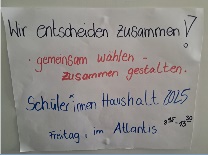 Wir entscheiden zusammen!
gemeinsam wählen -
zusammen gestalten.
Schüler*innen Haushalt 2025
Freitag, im Atlantis